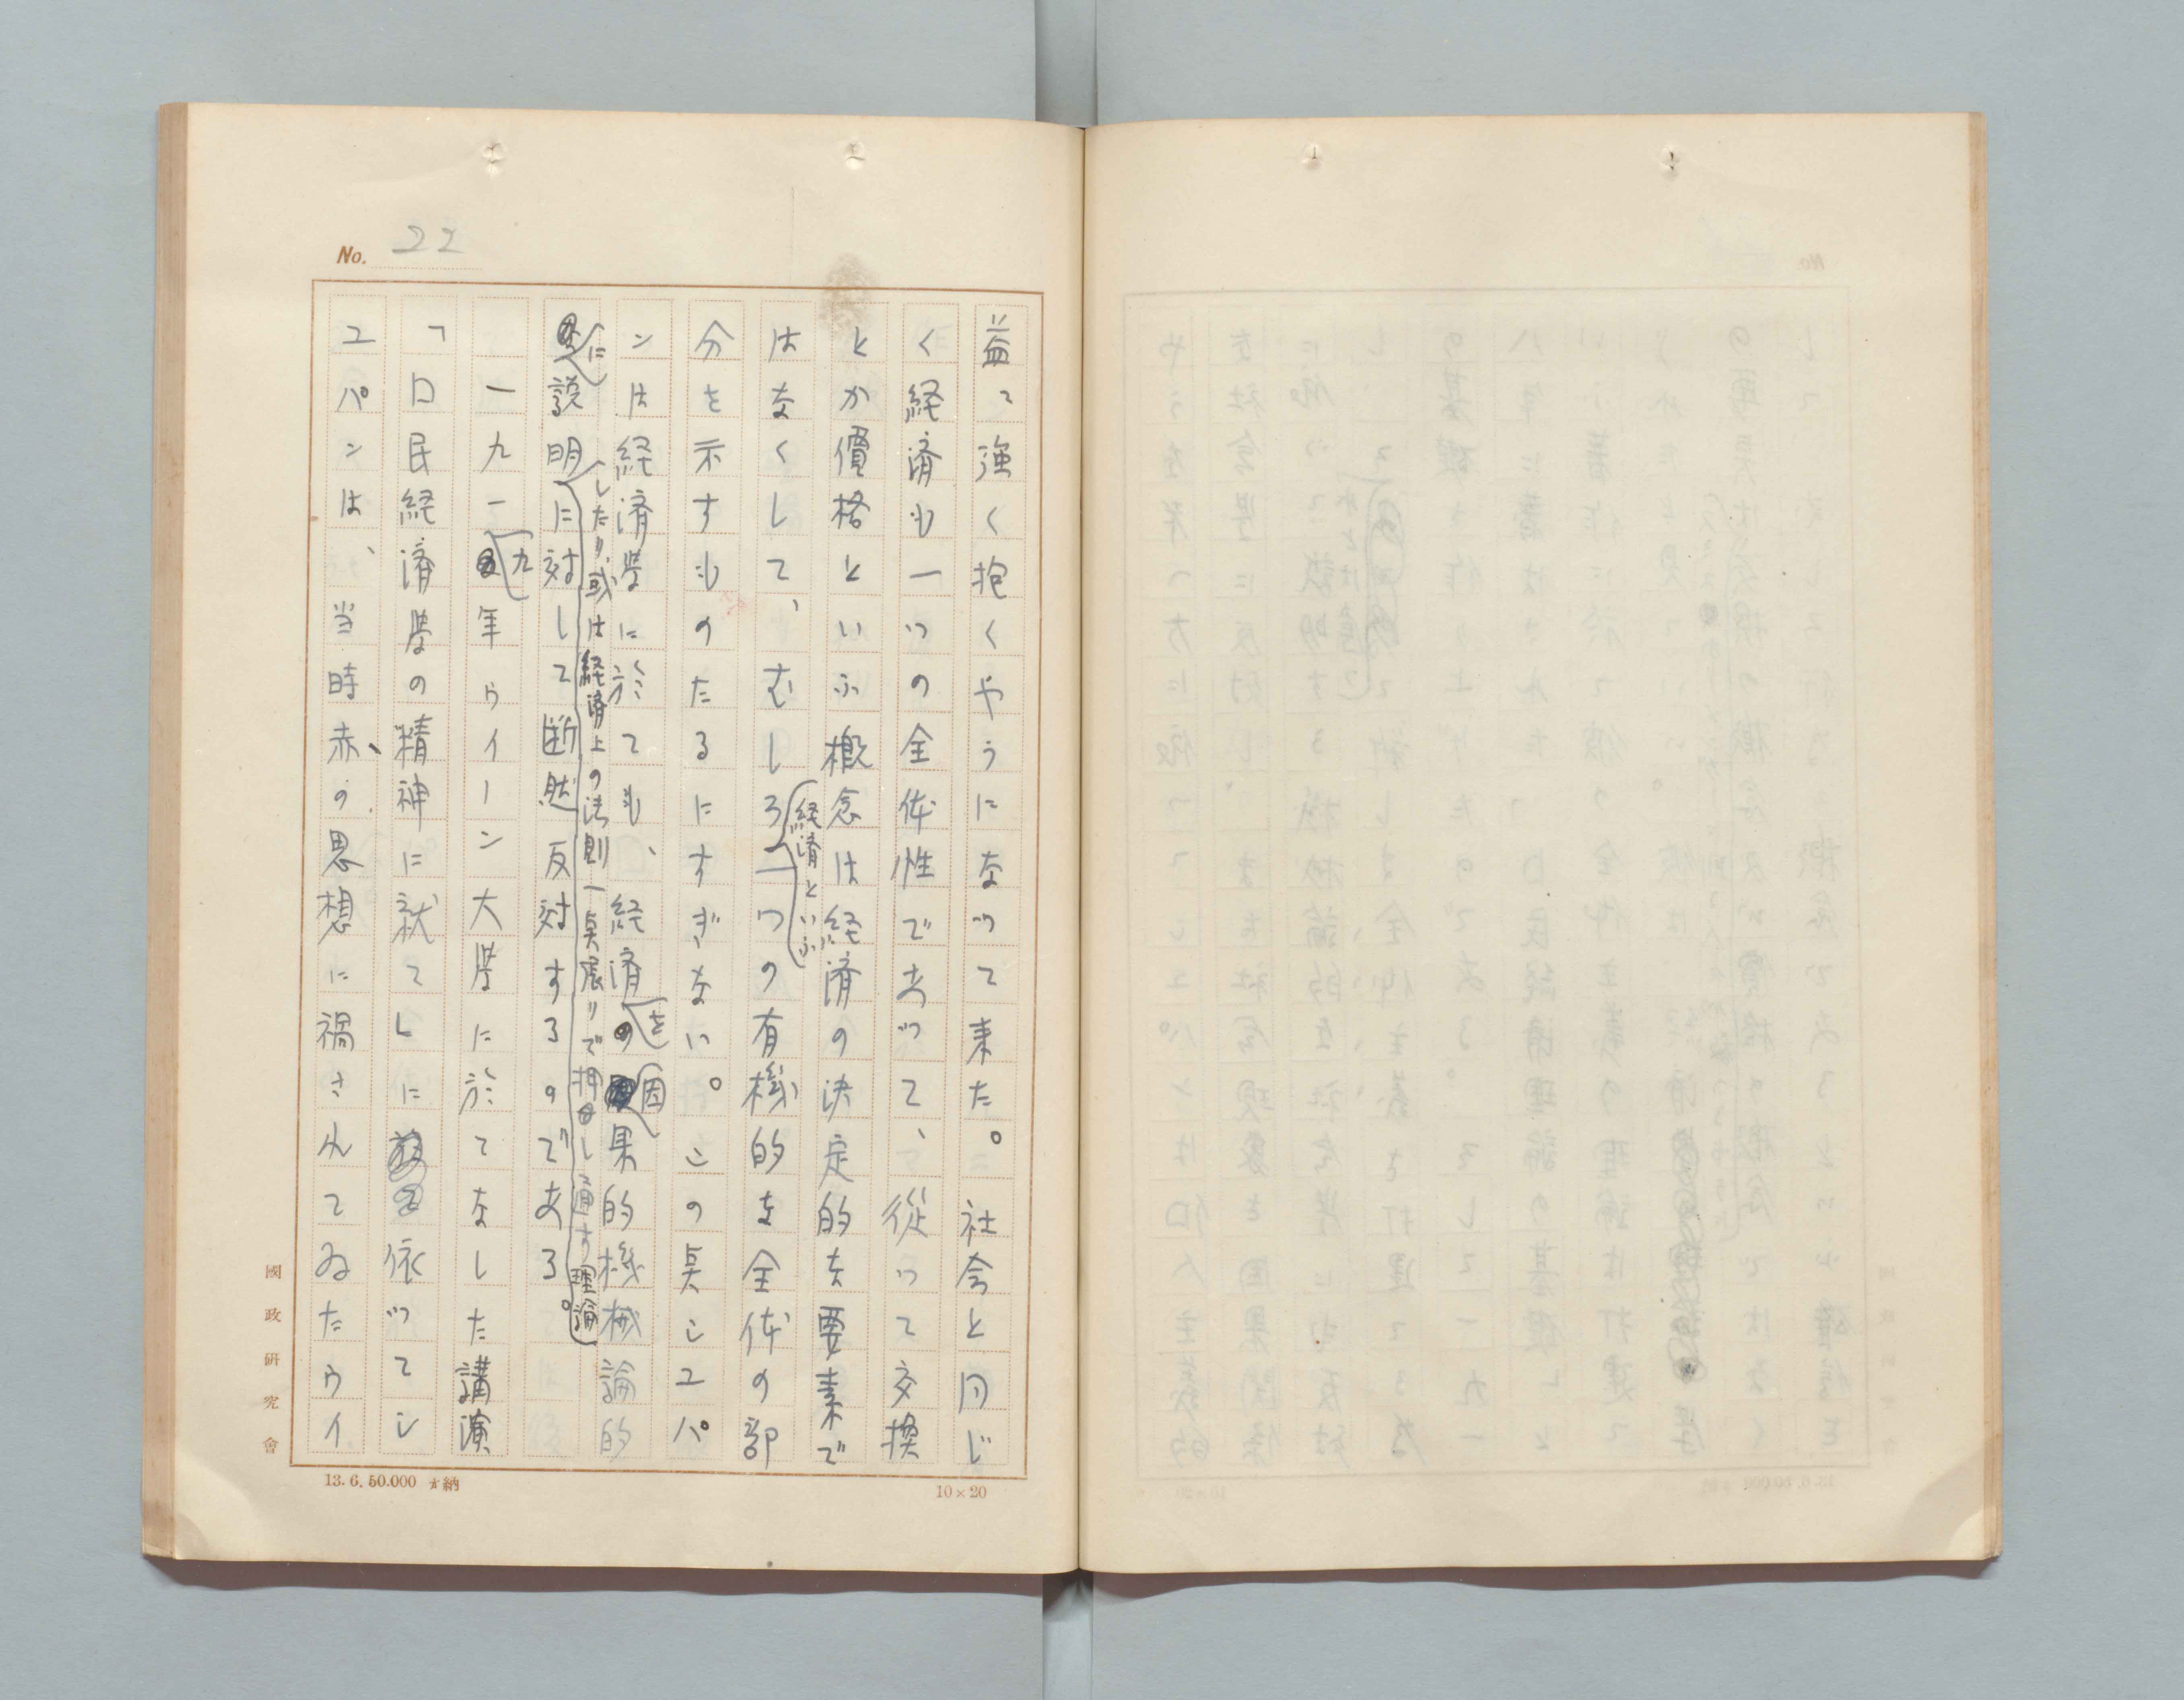 No. 22
益々強く抱くやうになつて来た。社会と同じ
く経済も一つの全体性であつて、従つて交換
とか價格といふ概念は経済の決定的な要素で
はなくして、むしろ経済といふ一つの有機的な全体の部
分を示すものたるにすぎない。シの点シユパ
ンは経済学に於ても、経済を因果的機械論的
に説明したり、或は経済上の法則一点張りで押し通す理論に対して断然反対するのである。
一九一九年ウイーン大学に於てなした講演
「口民経済学の精神に就て」に依つてシ
ユパンは、当時赤の思想に禍されてゐたウイ
國政研究會
13.6.50.000 納
10×20